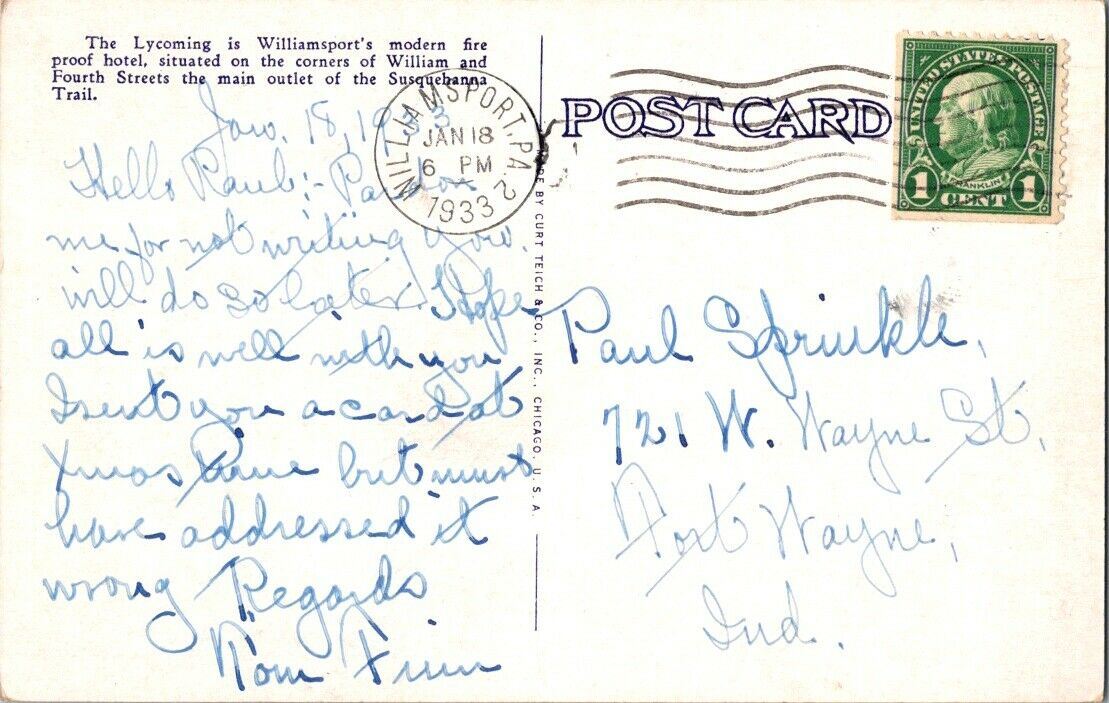 The Lycoming is Williamsport's modern fire
proof hotel, situated on the corners of William and
Fourth Streets the main outlet of the Susquehanna
Trail.
Jan. 18, 1933
Hello Paul:- Pardon
me for not writing you.
will do so later. Hope
all is well with you
I sent you a card at
Xmas time but must
have addressed it
wrong Regards
Tom Finn
WILLIAMSPORT, PA. 2
JAN 18
6 PM
1933
MADE BY CURT TEICH & CO., INC., CHICAGO, U. S. A.
POST CARD
UNITED STATES POSTAGE
FRANKLIN
1 CENT 1
Paul Sprinkle,
721 W. Wayne St.
Fort Wayne,
Ind.